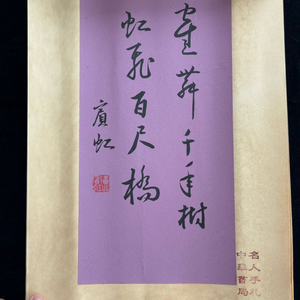 寉舞千年樹
虹飛百尺橋
賓虹
名人手札
中華書局